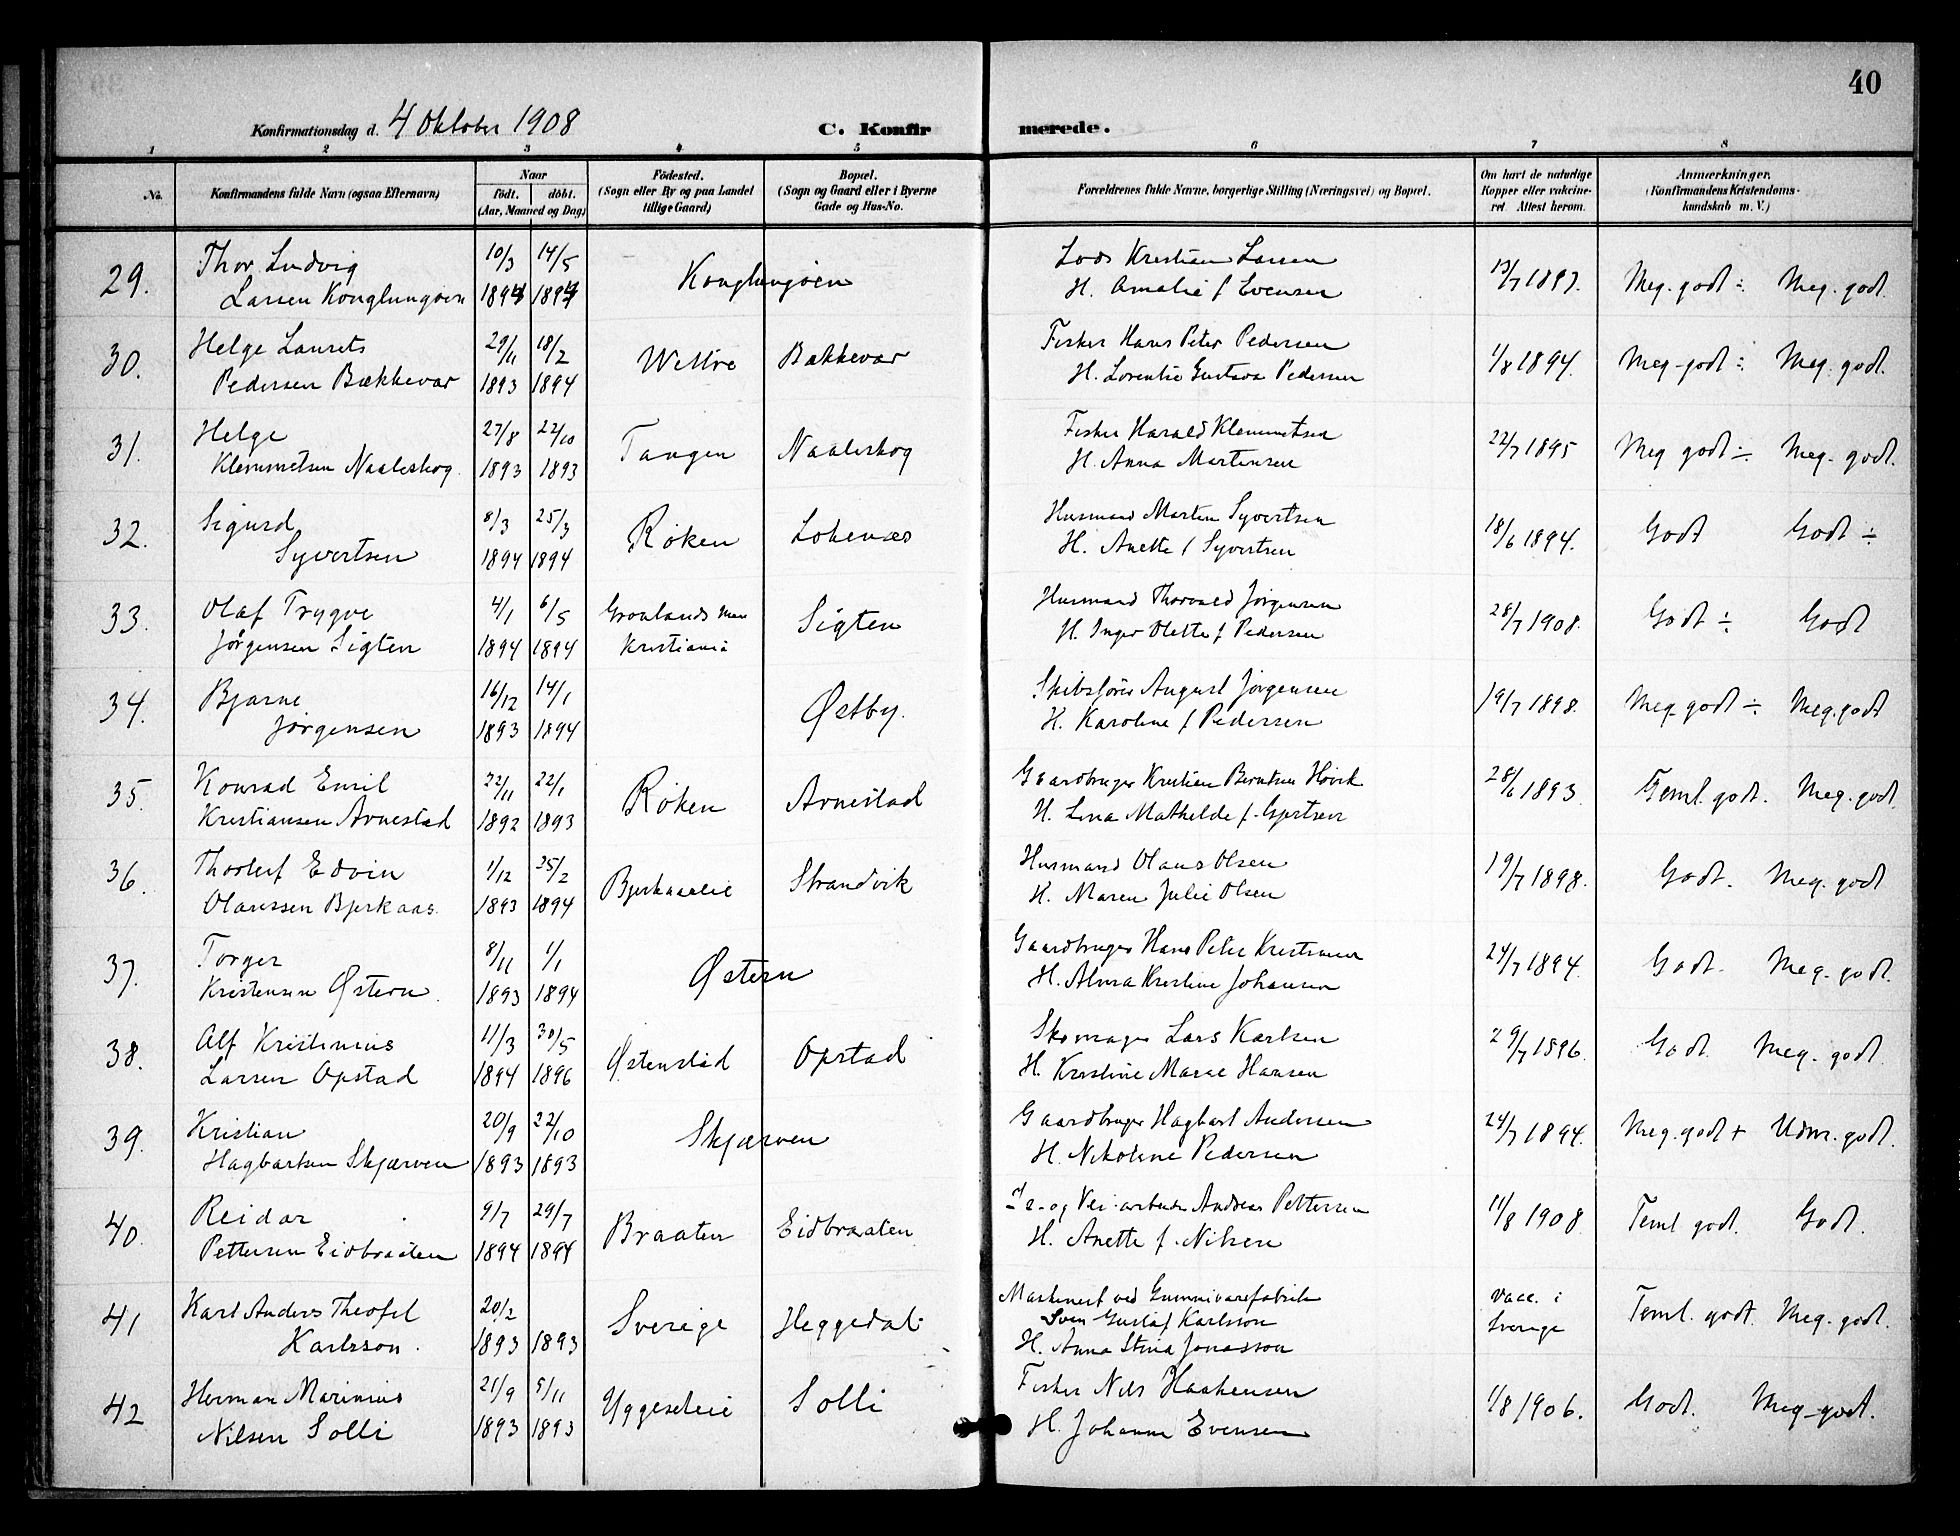 40
Konfirmationsdag d. 4 Oktober 1908 C. Konfirmerede.
1 2 3 4 5 6 7 8
No. Konfirmandens fulde Navn (ogsaa Efternavn) Naar født. døbt. (Aar, Maaned og Dag) Fødested. (Sogn eller By og paa Landet tillige Gaard) Bopæl. (Sogn og Gaard eller i Byerne Gade og Hus-No. Forældrenes fulde Navne, borgerlige Stilling (Næringsvei) og Bopæl. Om havt de naturlige Kopper eller vakcineret. Attest herom. Anmærkninger. (Konfirmandens Kristendomskundskab m. V.)
29. Thor Ludvig 10/3 14/5 Konglungøen Lods Kristian Larsen 13/7 1897. Meg. godt ÷ Meg. godt.
Larsen Konglungøen 1894 1894 H. Amalie f Evensen
30. Helge Laurets 29/11 18/2 Wettre Bakkevar Fisker Hans Peter Pedersen 1/8 1894. Meg. godt ÷ Meg. godt.
Pedersen Bækkevar 1893 1894 H. Lorentse Gustava Pedersen
31. Helge 27/8 22/10 Tangen Naaleskog Fisker Harald Klemmetsen 22/7 1895 Meg godt ÷ Meg. godt.
Klemmetsen Naaleskog. 1893 1893 H. Anna Martinsen
32. Sigurd 8/3 25/3 Røken Lokenæs Husmand Martin Syvertsen 18/6 1894. Godt Godt ÷
Syvertsen 1894 1894 H. Anette f Syvertsen
33. Olaf Trygve 4/1 6/5 Grønlands men Sigten Husmand Thorvald Jørgensen 28/7 1908. Godt ÷ Godt
Jørgensen Sigten 1894 1894 Kristiania H. Inger Olette f. Pedersen
34. Bjarne 16/12 14/1 Østby. Skibsfører August Jørgensen 19/7 1898. Meg. godt ÷ Meg. godt
Jørgensen 1893 1894 H. Karoline f Pedersen
35. Konrad Emil 22/11 22/1 Røken Arnestad Gaardbruger Kristian Berntsen Høvik 28/6 1893. Teml. godt. Meg. godt.
Kristiansen Arnestad 1892 1893 H. Lina Mathilde f. Gjertsen
36. Thorleif Edvin 1/12 25/2 Bjerkaaseie Strandvik Husmand Olaus Olsen 19/7 1898. Godt. Meg. godt
Olaussen Bjerkaas. 1893 1894 H. Maren Julie Olsen
37. Torger 8/11 1/1 Østern Gaardbruger Hans Peter Kristensen 24/7 1894. Godt. Meg. godt.
Kristensen Østern. 1893 1894 H. Alma Kristine Johansen
38. Alf Kristinius 11/3 30/5 Østenstad Opstad Skomager Lars Karlsen 29/7 1896. Godt. Meg. godt.
Larsen Opstad 1894 1896 H. Kristine Marie Hansen
39. Kristian 20/9 22/10 Skjærven Gaardbruger Hagbart Andersen 24/7 1894. Meg. godt + Udm. godt.
Hagbartsen Skjærven 1893 1893 H. Nikoline Pedersen
40. Reidar 9/7 29/7 Braaten Eidbraaten og Vei-arbeider Andreas Pettersen 11/8 1908 Teml godt. Godt.
Pettersen Eidbraaten 1894 1894 H. Anette f. Nilsen
41 Karl Anders Theofil 20/2 Sverige Heggedal Maskinist ved Gummivarefabrik vacc. i Teml. godt. Meg. godt.
Karlsson. 1893 1893 Sven Gustaf Karlsson Sverige
H. Anna Stina Jonasson
42 Herman Marinius 21/9 5/11 Yggeseteie Solli Fisker Nils Haakensen 1/8 1906. Godt. Meg. godt.
Nilsen Solli 1893 1893 H. Johanne Evensen